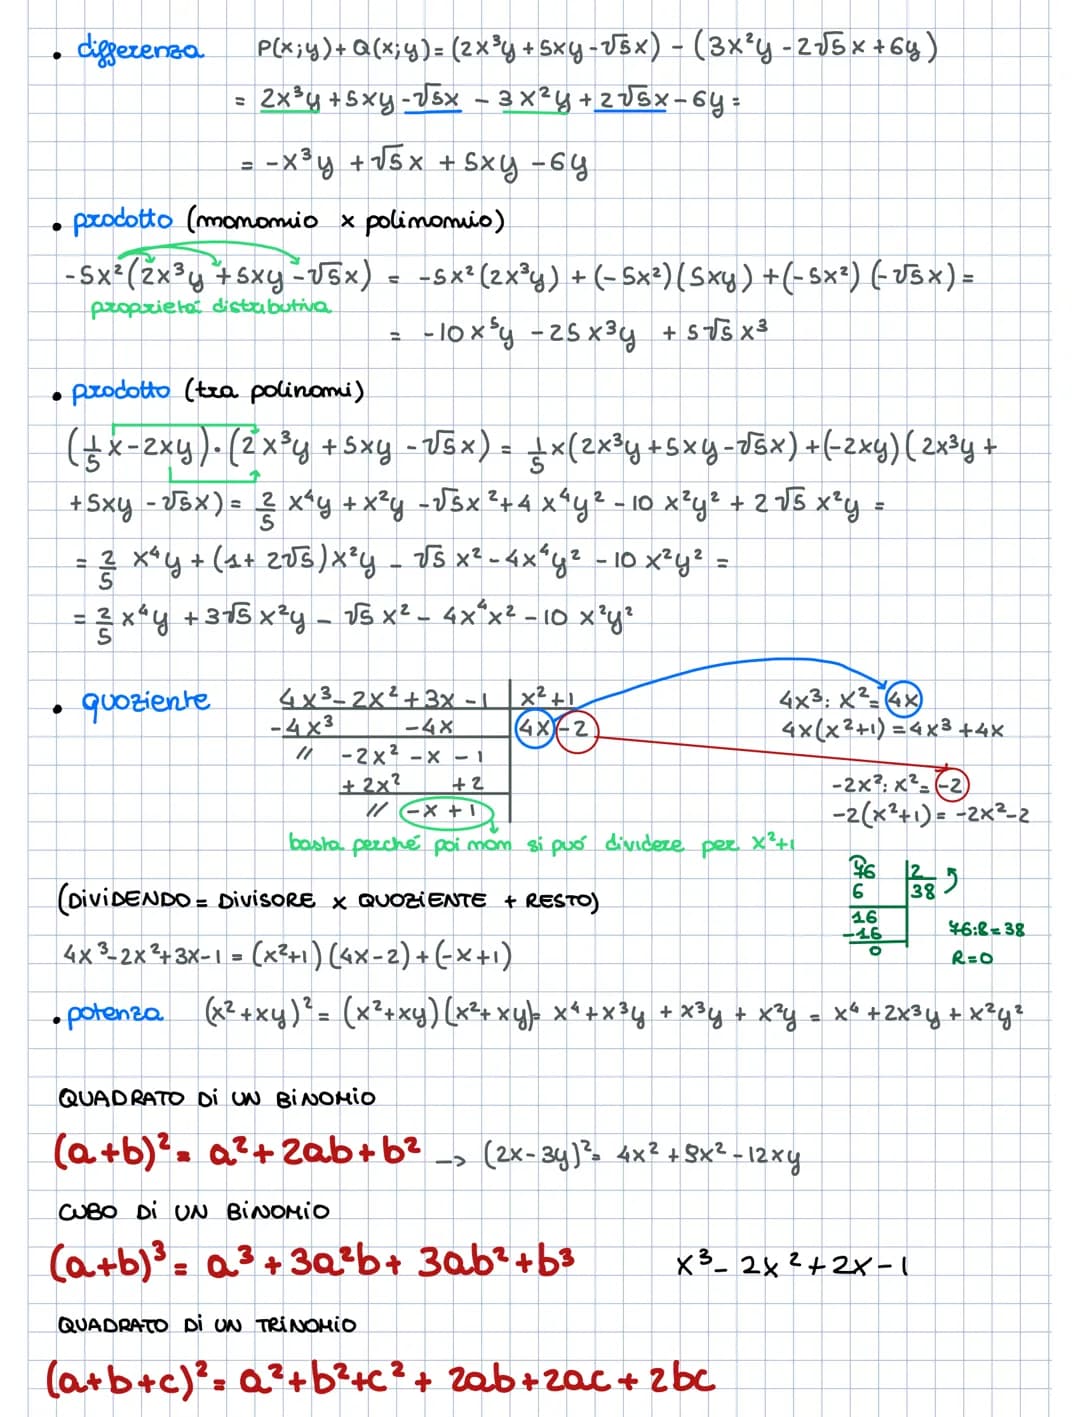 • differenza P(x;y)+Q(x;y)=(2x³y+5xy-√5x) - (3x²y-2√5x+6y)
= 2x³y+5xy-√5x - 3x²y+2√5x-6y=
= -x³y +√5x + 5xy -6y
• prodotto (monomio x polimomio)
-5x²(2x³y+5xy-√5x) = -5x²(2x³y) + (-5x²)(5xy) +(-5x²)(-√5x)=
proprietá distributiva
= -10x⁵y -25x³y + 5√5x³
• prodotto (tra polinomi)
(1/5x-2xy)·(2x³y+5xy-√5x) = 1/5x(2x³y+5xy-√5x)+(-2xy)(2x³y+
+5xy-√5x)= 2/5 x⁴y + x²y -√5x²+4x⁴y² - 10 x²y² + 2√5 x²y =
= 2/5 x⁴y + (1+2√5)x²y - √5 x² - 4x⁴y² - 10 x²y² =
= 2/5 x⁴y + 3√5 x²y - √5 x² - 4x⁴x² - 10 x²y²
• quoziente 4x³-2x²+3x-1 x²+1 4x³: x²= 4x
-4x³ -4x 4x-2 4x(x²+1) = 4x³ +4x
// -2x² -x -1
+2x² +2 -2x²: x²= -2
// -x +1 -2(x²+1)= -2x²-2
basta perché poi mom si puó dividere per x²+1
76 2
(DIVIDENDO = DIVISORE x QUOZIENTE + RESTO) 6 38
16
-16 76:2=38
0 R=0
4x³-2x²+3x-1 = (x²+1)(4x-2)+(-x+1)
• potenza (x²+xy)²= (x²+xy)(x²+xy)= x⁴+x³y + x³y + x²y = x⁴+2x³y + x²y²
QUADRATO Di UN BiNOMiO
(a+b)²= a²+2ab+b² -> (2x-3y)²= 4x²+9x²-12xy
CUBO Di UN BiNOMiO
(a+b)³= a³+3a²b+3ab²+b³ x³-2x²+2x-1
QUADRATO Di UN TRiNOMiO
(a+b+c)²= a²+b²+c²+2ab+2ac+2bc